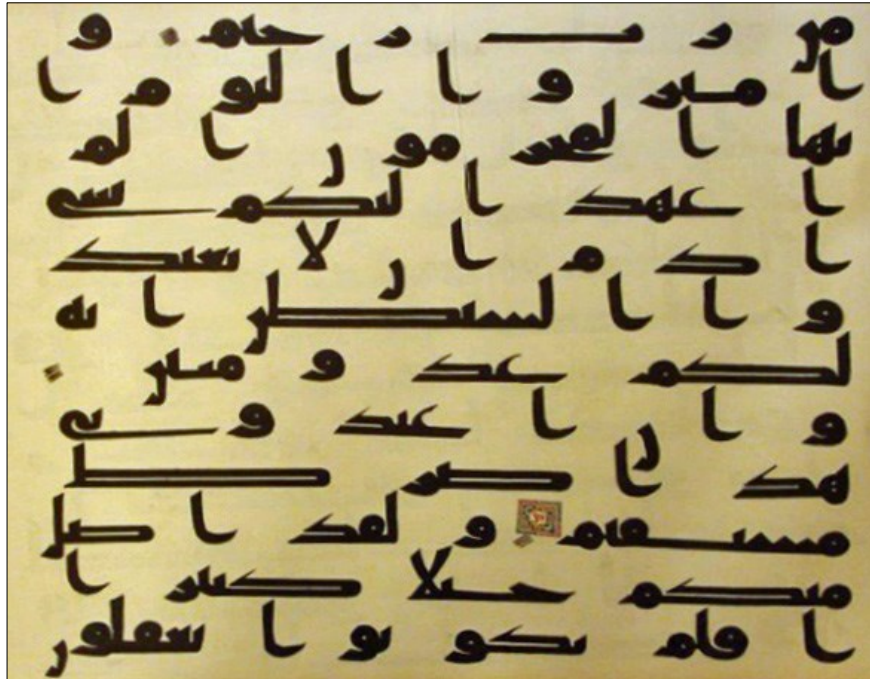 من رب رحيم و
امتزوا اليوم ا
يها المجرمون الم
اعهد اليكم يبني
ادم ان لا تعبد
وا الشيطن انه
لكم عدو مبين
وان اعبدوني
هذا صرط
مستقيم ولقد اضل
منكم جبلا كثيرا
افلم تكونوا تعقلون